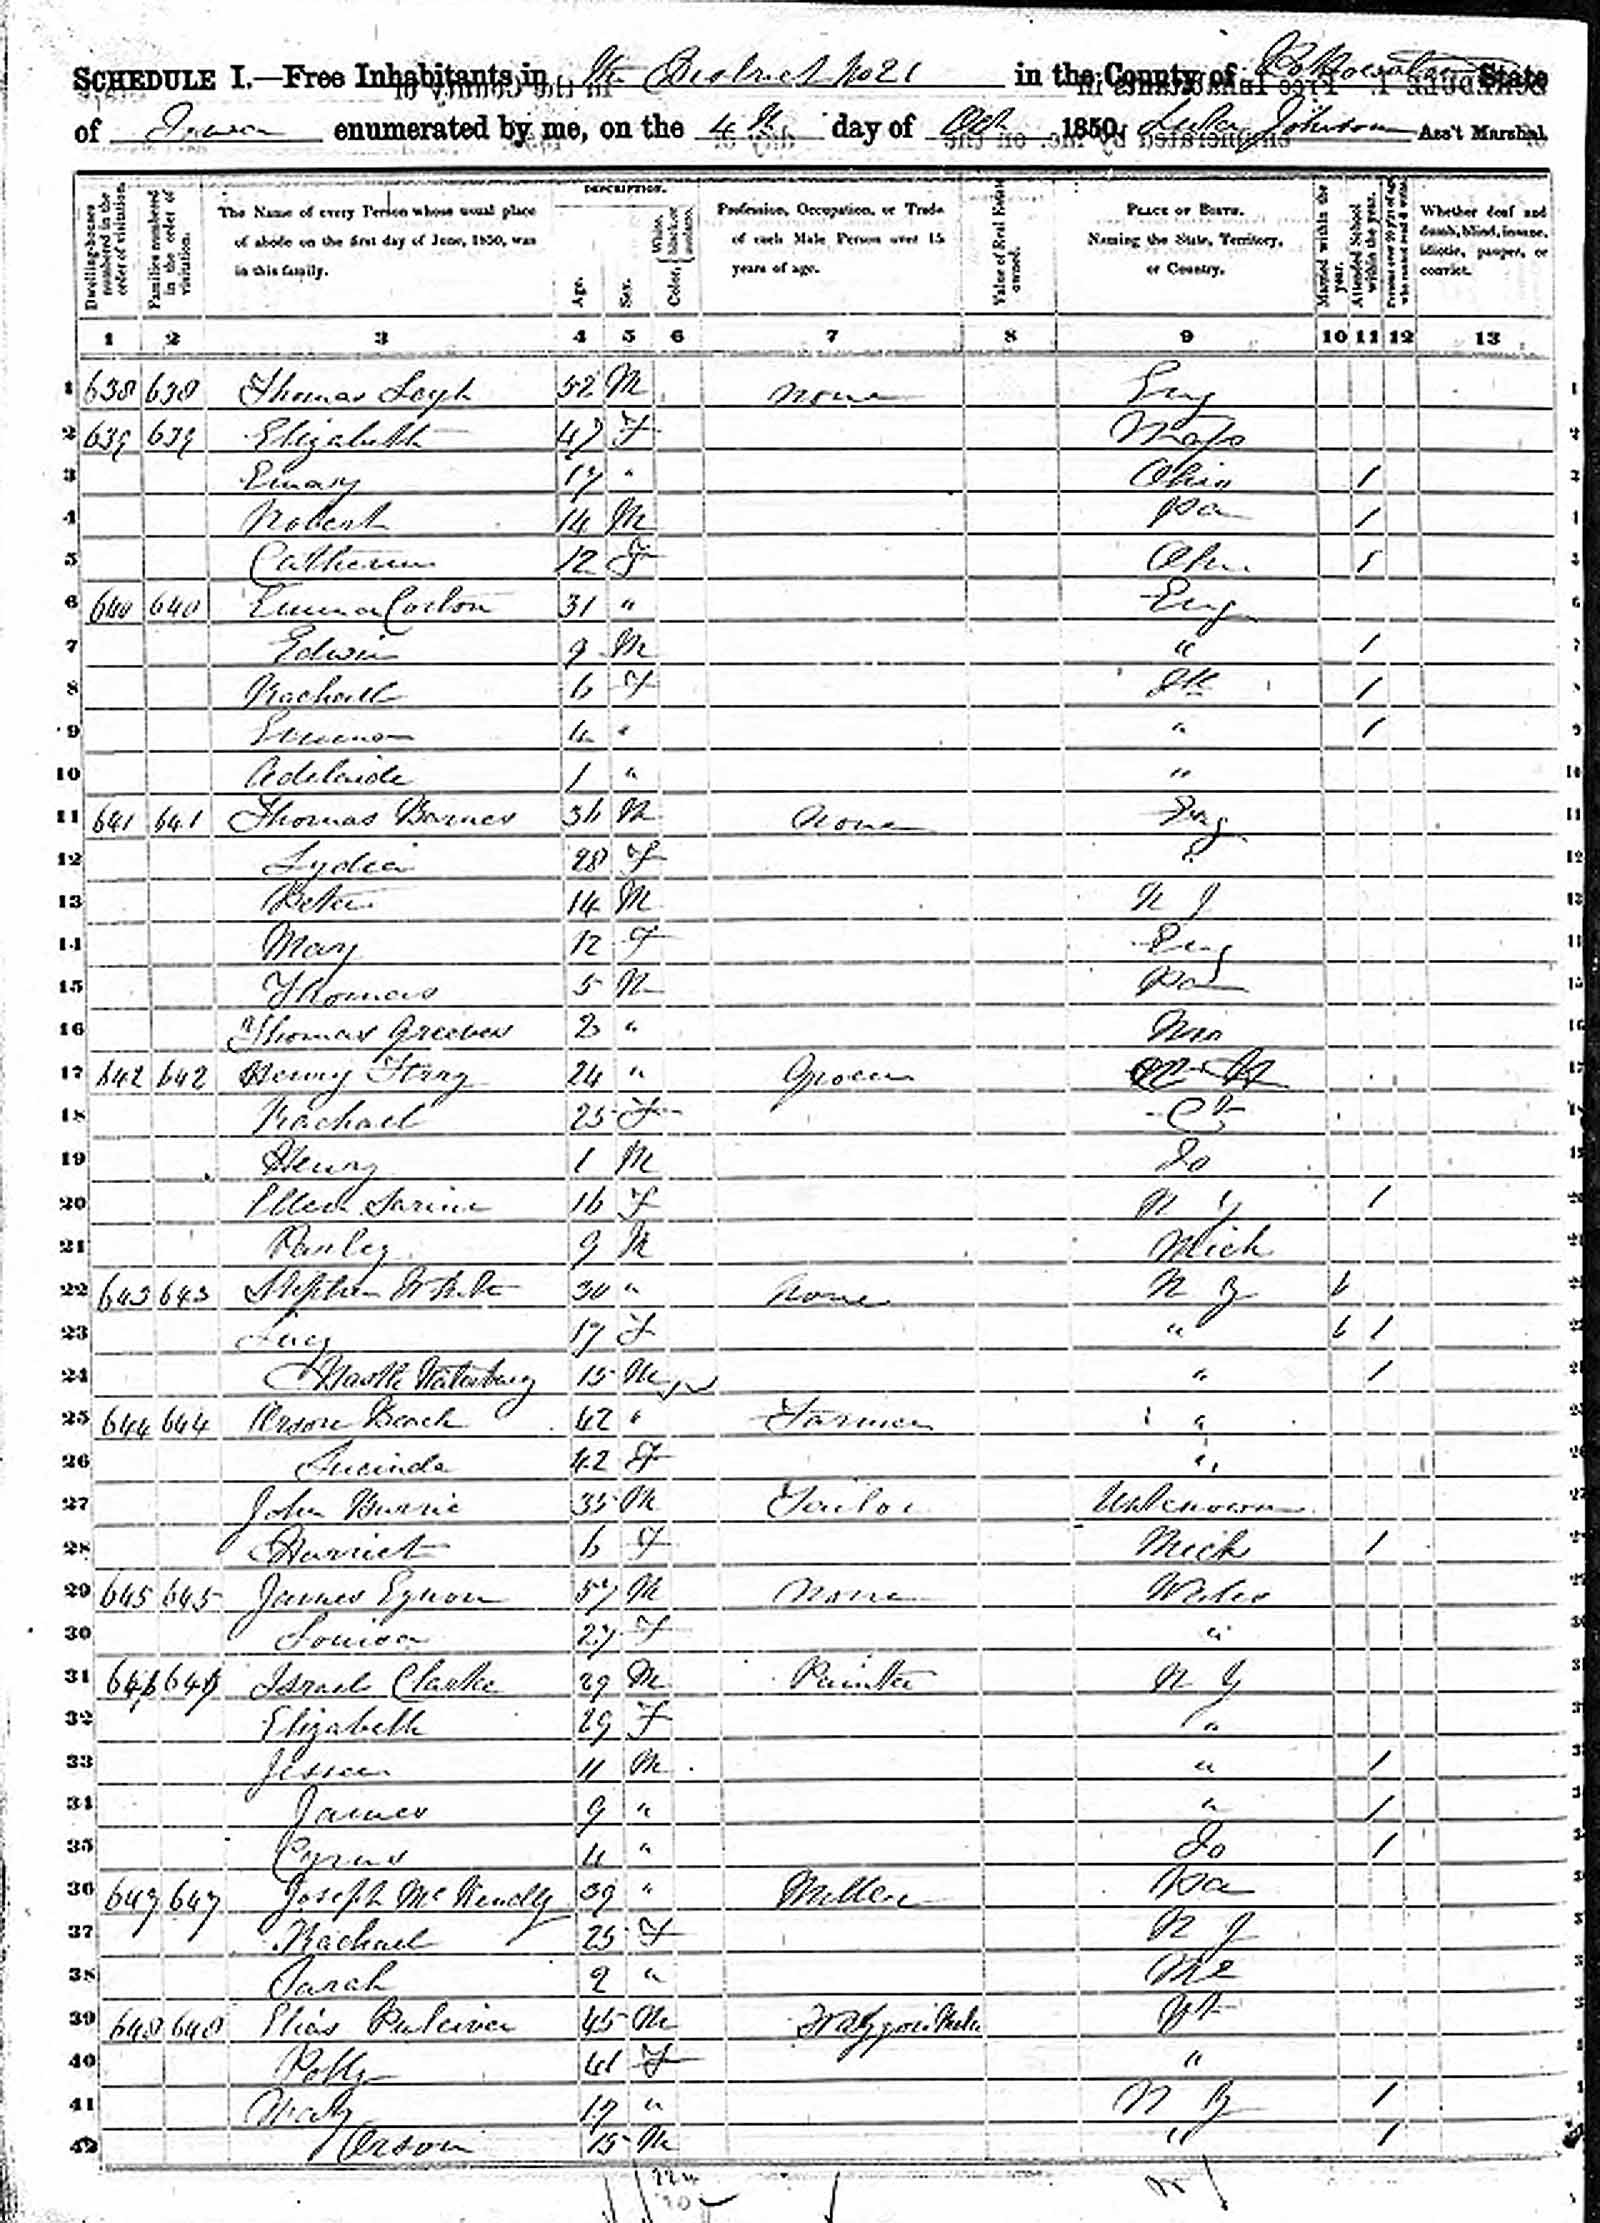 SCHEDULE I.—Free Inhabitants in District No 21 in the County of Pottawattamie State
of Iowa enumerated by me, on the 4th day of Oct 1850. Johnson Ass't Marshal.
Dwelling-houses numbered in the order of visitation.
Families numbered in the order of visitation.
The Name of every Person whose usual place of abode on the first day of June, 1850, was in this family.
DESCRIPTION.
Age.
Sex.
Color, { White, black, or mulatto.
Profession, Occupation, or Trade of each Male Person over 15 years of age.
Value of Real Estate owned.
PLACE OF BIRTH. Naming the State, Territory, or Country.
Married within the year.
Attended School within the year.
Persons over 20 y'rs of age who cannot read & write.
Whether deaf and dumb, blind, insane, idiotic, pauper, or convict.
1 2 3 4 5 6 7 8 9 10 11 12 13
1 638 638 Thomas Leigh 52 M None Eng 1
2 639 639 Elizabeth 47 F Mass 2
3 17 " Ohio 1 3
4 Robert 14 M Pa 1 4
5 Catherine 12 F Ohio 1 5
6 640 640 Emma 31 " Eng 6
7 Edwin 9 M " 1 7
8 Rachael 6 F Ill 1 8
9 4 " " 1 9
10 Adelaide 1 " " 10
11 641 641 Thomas Barnes 36 M None Eng 11
12 Lydia 28 F " 12
13 Peter 14 M N J 13
14 Mary 12 F Eng 14
15 Thomas 5 M Pa 15
16 Thomas Greeves 2 " 16
17 642 642 Henry 24 " Grocer 17
18 Rachael 25 F Ct 18
19 Henry 1 M Io 19
20 Ellen 16 F N Y 1 20
21 9 M Mich 21
22 643 643 Stephen White 30 " None N Y 1 22
23 Lucy 17 F " 1 1 23
24 Waterbury 15 M " 1 24
25 644 644 Orson Beach 42 " Farmer " 25
26 Lucinda 42 F " 26
27 John 35 M Tailor Unknown 27
28 Harriet 6 F Mich 1 28
29 645 645 James Eynon 57 M None Wales 29
30 Louisa 27 F " 30
31 646 646 Israel Clarke 29 M Painter N Y 31
32 Elizabeth 29 F " 32
33 11 M " 1 33
34 James 9 " " 1 34
35 Cyrus 4 " Io 1 35
36 647 647 Joseph 39 " Miller Pa 36
37 Rachael 25 F N J 37
38 Sarah 2 " 38
39 648 648 Elias Pulciver 45 M Vt 39
40 Polly 41 F " 40
41 Mary 17 " N Y 1 41
42 Orson 15 M " 1 42